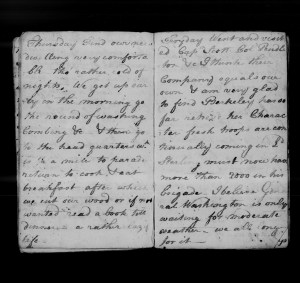 Thursday find ourselves
dee living very comforta
ble tho rather cold of
nights. We get up ear
ly in the morning go
the round of washing
Combing &c & then go
to the head quarters wh
is ½ a mile to parade
return to cook & eat
breakfast after which
we cut our wood or if not
wanted read a book till
dinner a rather lazy
life.
Fryday Went and visit
ed Cap
&c I think their
Company equals our
own & am very glad
to find Berkeley has so
far retrivd her Charac
ter fresh troops are con
tinually coming in Ld
Sterling must now have
more than 2000 in his
brigade. I believe Gene
ral Washington is only
waiting for moderate
weather. we all long
for it